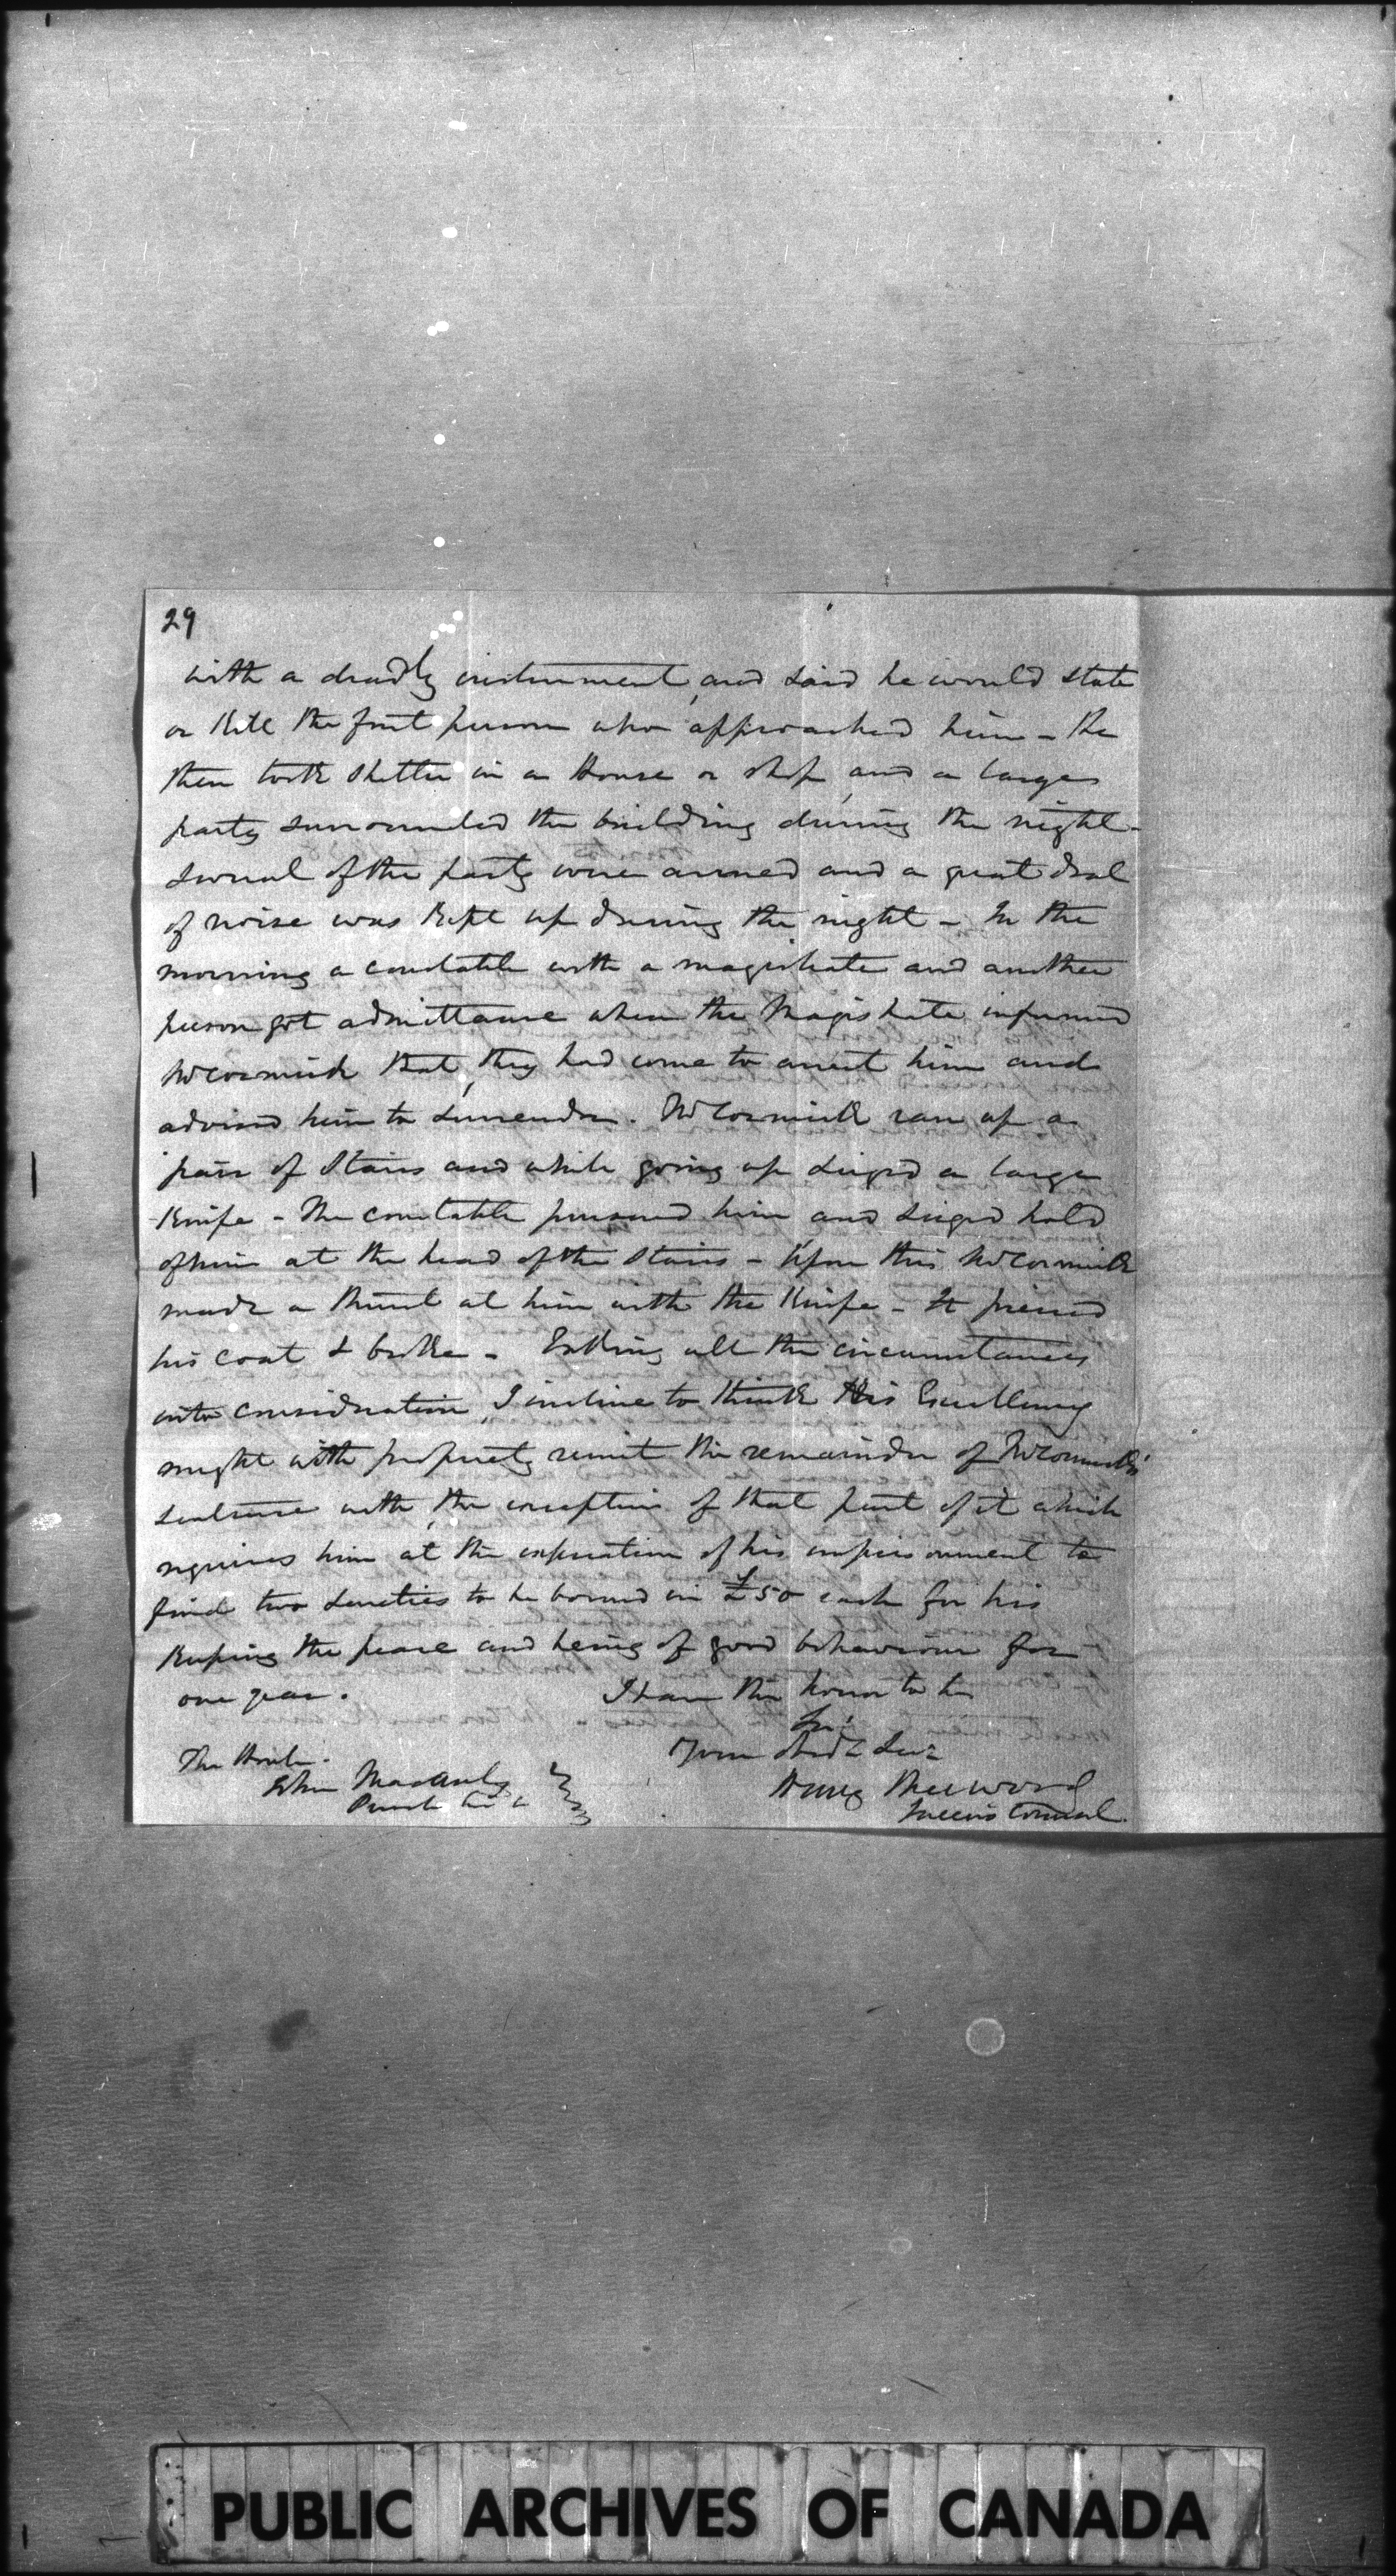 29
with a deadly instrument, and said he would stab
or kill the first person who approached him - He
then took shelter in a House or shop, and a large
party surrounded the building during the night -
several of the party were armed and a great deal
of noise was kept up during the night - In the
morning a constable with a magistrate and another
person got admittance when the Magistrate informed
McCormick that, they had come to arrest him and
advised him to surrender. McCormick ran up a
pair of Stairs and while going up siezed a large
Knife - The constable pursued him and siezed hold
of him at the head of the stairs - Upon this McCormick
made a thrust at him with the Knife - It pierced
his coat & broke - Taking all the circumstances
into consideration, I incline to think His Excellency
might with propriety remit the remainder of McCormick's
sentence with, the exception of that part of it which
requires him at the expiration of his imprisonment to
find two sureties to be bound in £50 each for his
keeping the peace and being of good behaviour for
one year.
I have the honor to be
Sir,
Your Obedt Servt
Henry Sherwood
Queen's Counsel.
The Honble.
John Macaulay
PUBLIC ARCHIVES OF CANADA